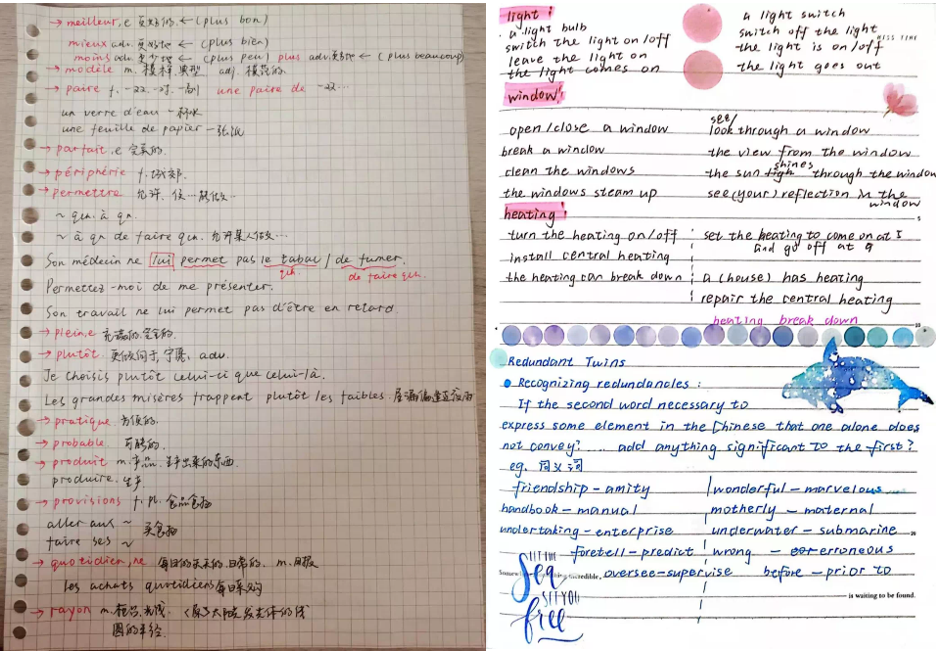 → meilleur,e 更好的. ← (plus bon)
mieux adv. 更好地 ← (plus bien)
moins adv. 更少地 ← (plus peu) plus adv. 更多地 ← (plus beaucoup)
→ modèle m. 模样, 典型 adj. 模范的.
→ paire f. 一双. 一对. 一副 une paire de 一双…
un verre d'eau 一杯水
une feuille de papier 一张纸
→ parfait,e 完美的.
→ périphérie f. 城郊.
→ permettre 允许. 使…能做…
~ qch. à qn.
~ à qn de faire qch. 允许某人做…
Son médecin ne lui permet pas le tabac / de fumer.
qch. de faire qch.
Permettez-moi de me présenter.
Son travail ne lui permet pas d'être en retard.
→ plein,e 充满的, 完全的.
→ plutôt 更倾向于, 宁愿. adv.
Je choisis plutôt celui-ci que celui-là.
Les grandes misères frappent plutôt les faibles. 屋漏偏逢连夜雨
→ pratique 方便的.
→ probable 可能的.
→ produit m. 产品. 生产出来的东西.
produire. 生产
→ provisions f. pl. 食品食物
aller aux ~
faire ses ~ 买食物
→ quotidien,ne 每日的天天的, 日常的. m. 日报
les achats quotidiens 每日采购
→ rayon m. 柜台. 光线. 太阳发光体的线
圆的半径.
light:
a light bulb
switch the light on/off
leave the light on
the light comes on
a light switch
switch off the light
MISS TIME
the light is on/off
the light goes out
window:
open/close a window
break a window
clean the windows
the windows steam up
see/
look through a window
the view from the window
shines
the sun ligh through the window
see (your) reflection in the
window
heating:
turn the heating on/off
install central heating
the heating can break down
set the heating to come on at 7
and go off at 9
a (house) has heating
repair the central heating
heating break down
Redundant Twins
Recognizing redundancies:
If the second word necessary to
express some element in the Chinese that one alone does
not convey? .... add anything significant to the first?
eg. 同义词
friendship – amity
handbook – manual
undertaking – enterprise
foretell – predict
oversee – supervise
wonderful – marvelous
motherly – maternal
underwater – submarine
wrong – erroneous
before – prior to
LET THE
Sea
SET YOU
free
incredible,
is waiting to be found.